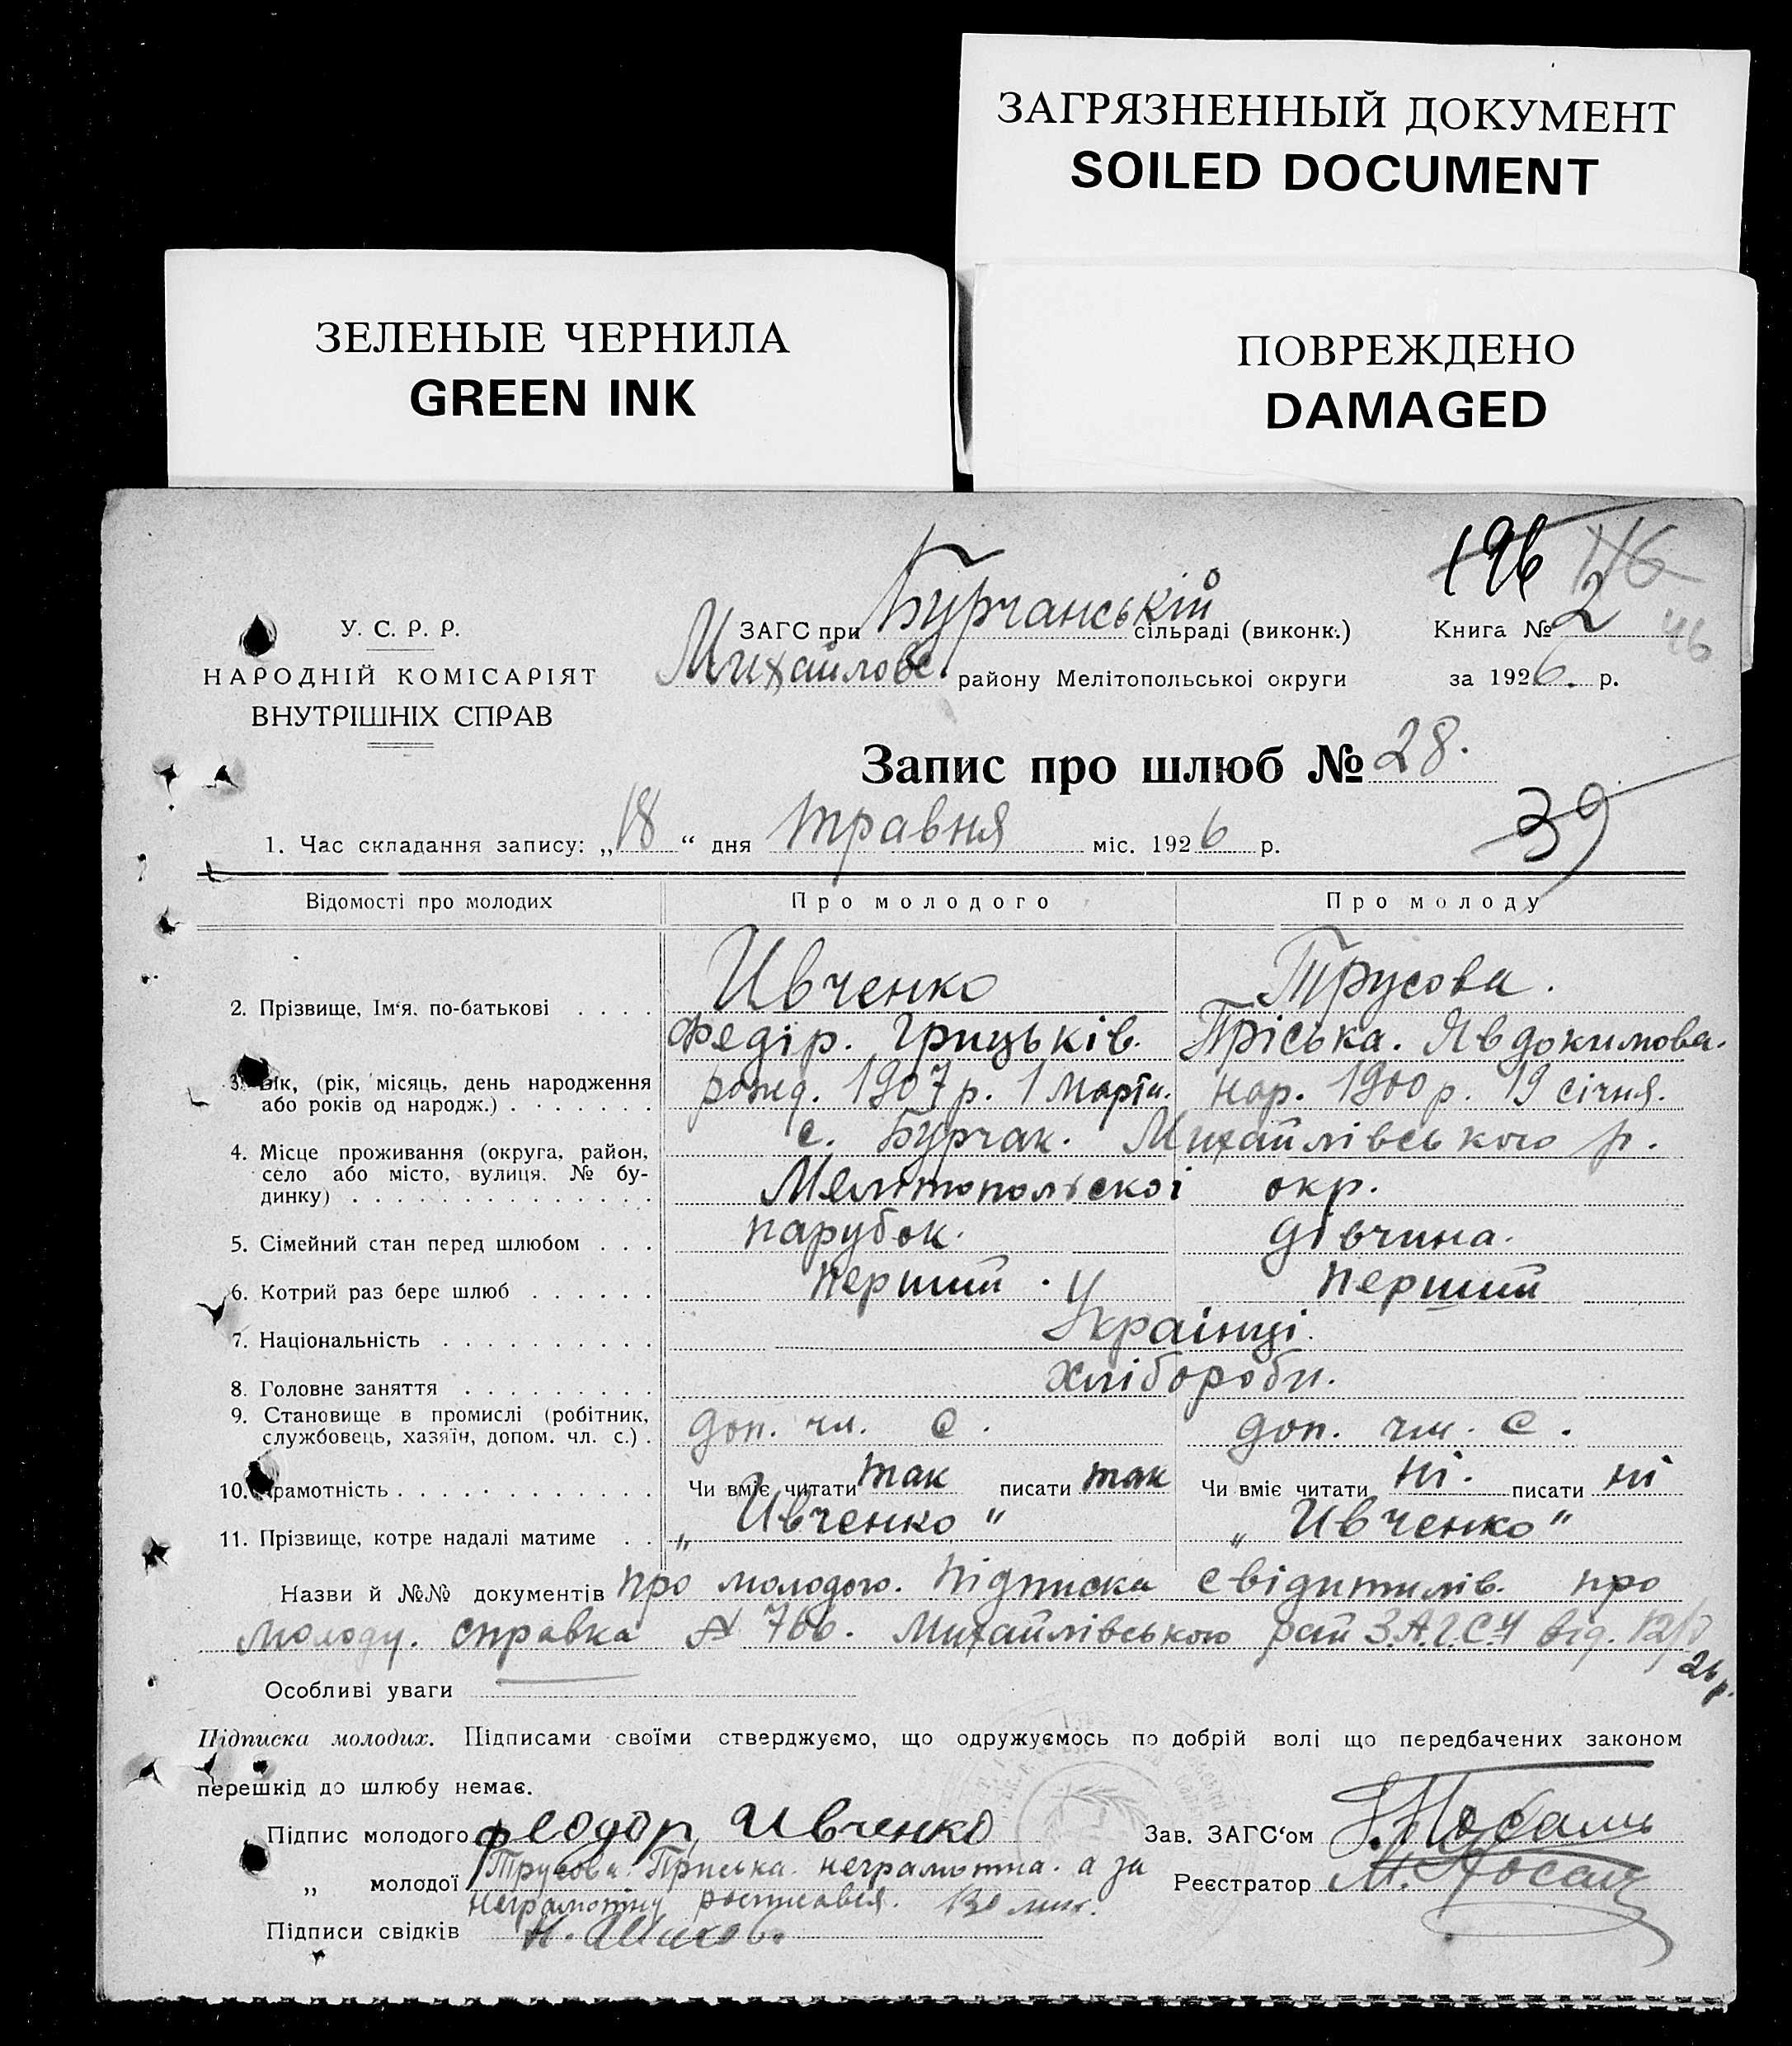 ЗАГРЯЗНЕННЫЙ ДОКУМЕНТ
SOILED DOCUMENT
ЗЕЛЕНЫЕ ЧЕРНИЛА
GREEN INK
ПОВРЕЖДЕНО
DAMAGED
196 116
У. С. Р. Р.
НАРОДНІЙ КОМІСАРІЯТ
ВНУТРІШНІХ СПРАВ
ЗАГС при Бурчанській сільраді (виконк.)
Михайловс. району Мелітопольської округи
Книга № 2 46
за 1926. р.
Запис про шлюб № 28.
39
1. Час складання запису: „18“ дня травня міс. 1926 р.
Відомості про молодих Про молодого Про молоду
2. Прізвище, Ім'я, по-батькові . . . . Ивченко Трусова.
Федір. Грицьків. Пріська. Явдокимова.
3. Вік, (рік, місяць, день народження рожд. 1907 р. 1 марта. нар. 1900 р. 19 січня.
або років од народж.) . . . . . . .
4. Місце проживання (округа, район, с. Бурчак. Михайлівського р.
село або місто, вулиця, № бу-
динку) . . . . . . . . . . . . . . Мелитопольскоі окр.
5. Сімейний стан перед шлюбом . . . парубок. дівчина.
6. Котрий раз бере шлюб . . . . . . перший. перший
7. Національність . . . . . . . . . . Українці.
8. Головне заняття . . . . . . . . . хлібороби.
9. Становище в промислі (робітник,
службовець, хазяїн, допом. чл. с.) . доп. чл. с. доп. чл. с.
10. Грамотність . . . . . . . . . . . Чи вміє читати так писати так Чи вміє читати ні. писати ні
11. Прізвище, котре надалі матиме . . „Ивченко“ „Ивченко“
Назви й №№ документів про молодого. Підписка свідитилів. про
молоду. справка № 766. Михайлівського рай З.А.Г.С-У від. 12/V
26 р.
Особливі уваги
Підписка молодих. Підписами своїми стверджуємо, що одружуємось по добрій волі що передбачених законом
перешкід до шлюбу немає.
Підпис молодого Феодор Ивченко Зав. ЗАГС'ом
„ молодої Трусова Приська неграмотна. а за Реєстратор
неграмотну росписався.
Підписи свідків